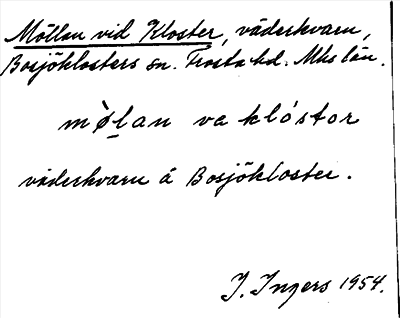 Möllan vid Kloster, väderkvarn,
Bosjöklosters sn. Frosta hd. Mhs län.
mø̀lan va klóstor
väderkvarn å Bosjökloster.
I. Ingers 1954.